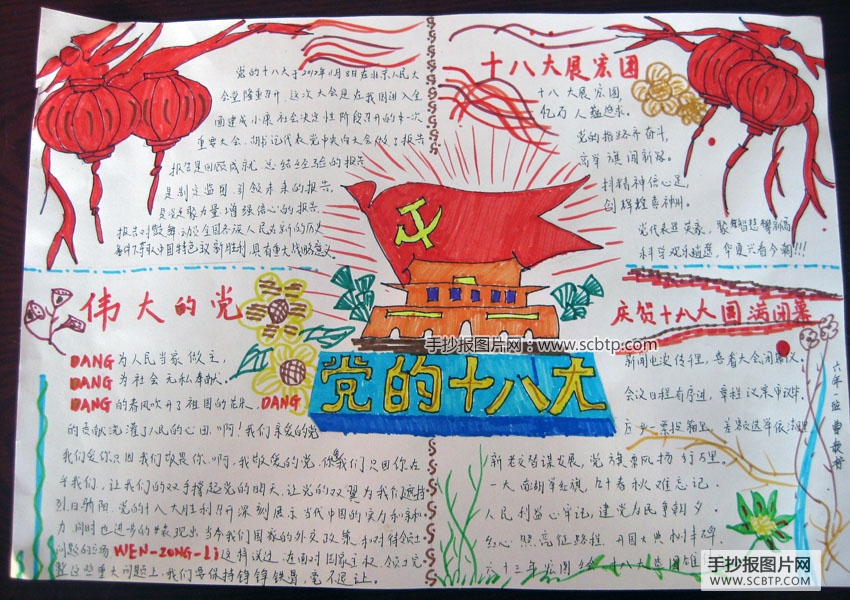 党的十八大于2012年11月8日在北京人民大
会堂隆重召开,这次大会是在我国进入全
面建成小康社会决定性阶段召开的一次
重要大会,胡书记代表党中央向大会做了报告
报告是回顾成就,总结经验的报告
是制定蓝图,引领未来的报告,
是凝聚力量增强信心的报告,
报告对鼓舞动员全国各族人民在新的历史
条件下夺取中国特色新胜利,具有重大战略意义
十八大展宏图
十八大展宏图
亿万人
党的指路齐奋斗,
高举旗闯新路。
抖精神信心足,
创辉煌
党代表
科学观 华夏兴看今朝!!!
伟大的党
DANG为人民当家做主,
DANG为社会无私奉献。
DANG的春风吹开了祖国的花朵,DANG
的贡献浇灌了人民的心田。"啊!我们亲爱的党
我们爱你只因我们敬畏你。"啊,我敬爱的党,你 我们只因你在
乎我们,让我们的双手撑起党的明天,让党的双翼为我们遮挡
烈日骄阳。党的十八大胜利召开深刻展示当代中国的实力和亲和
力,同时也进步的表现出当今我们国家的外交政策,和对待领土
问题的立场 WEN-ZONG-Li这样说过:在面对国家主权,领土完
整这些重大问题上,我们要保持铮铮铁骨,毫不退让。
党的十八大
庆贺十八大圆满闭幕
新闻电波传 喜看大会闭
会议日程有序进,章程议案审议毕。
一票
新老交替谋发展,党旗飘扬 行万里。
一大南湖举红旗,九十春秋难忘记。
人民利益心牢记,建党为民
红心照亮征路程,开国大典树丰碑
六十三年宏图绘 十八大
六年一班 曹
手抄报图片网:www.scbtp.com
手抄报图片网
WWW.SCBTP.COM